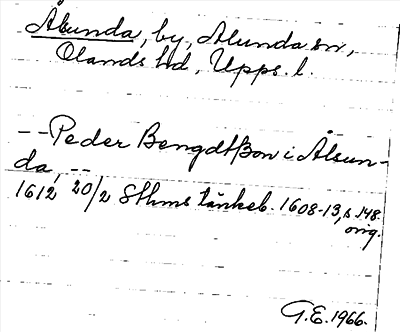 Ålunda, by, Alunda sn,
Olands hd, Upps. l.
-- Peder Bengdtßon i Ålsun-
da, --
1612 20/2 Sthms tänkeb. 1608-13, s 148.
orig.
G.E. 1966.